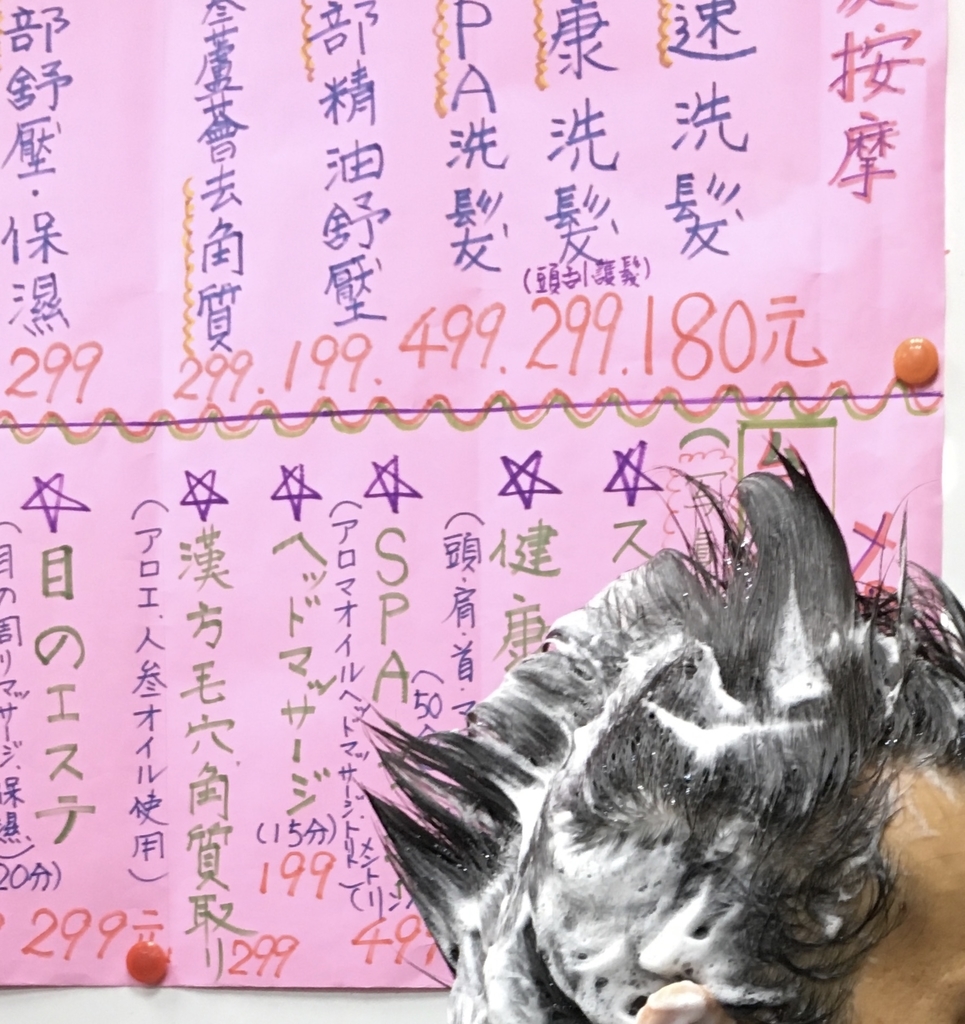 按摩
速洗髮
180元
康洗髮
(頭刮護髮)
299.
PA洗髮
499.
部精油舒壓
199.
蘆薈去角質
299.
部舒壓・保濕
299
メ
ス
健康
(頭・肩・首・マ
SPA
(50分
49
(アロマオイルヘッドマッサージ、トリートメント
ヘッドマッサージ
(15分)
199
漢方毛穴角質取り
299
(アロエ、人参オイル使用)
目のエステ
(目の周りマッサージ、保濕)
20分)
299元